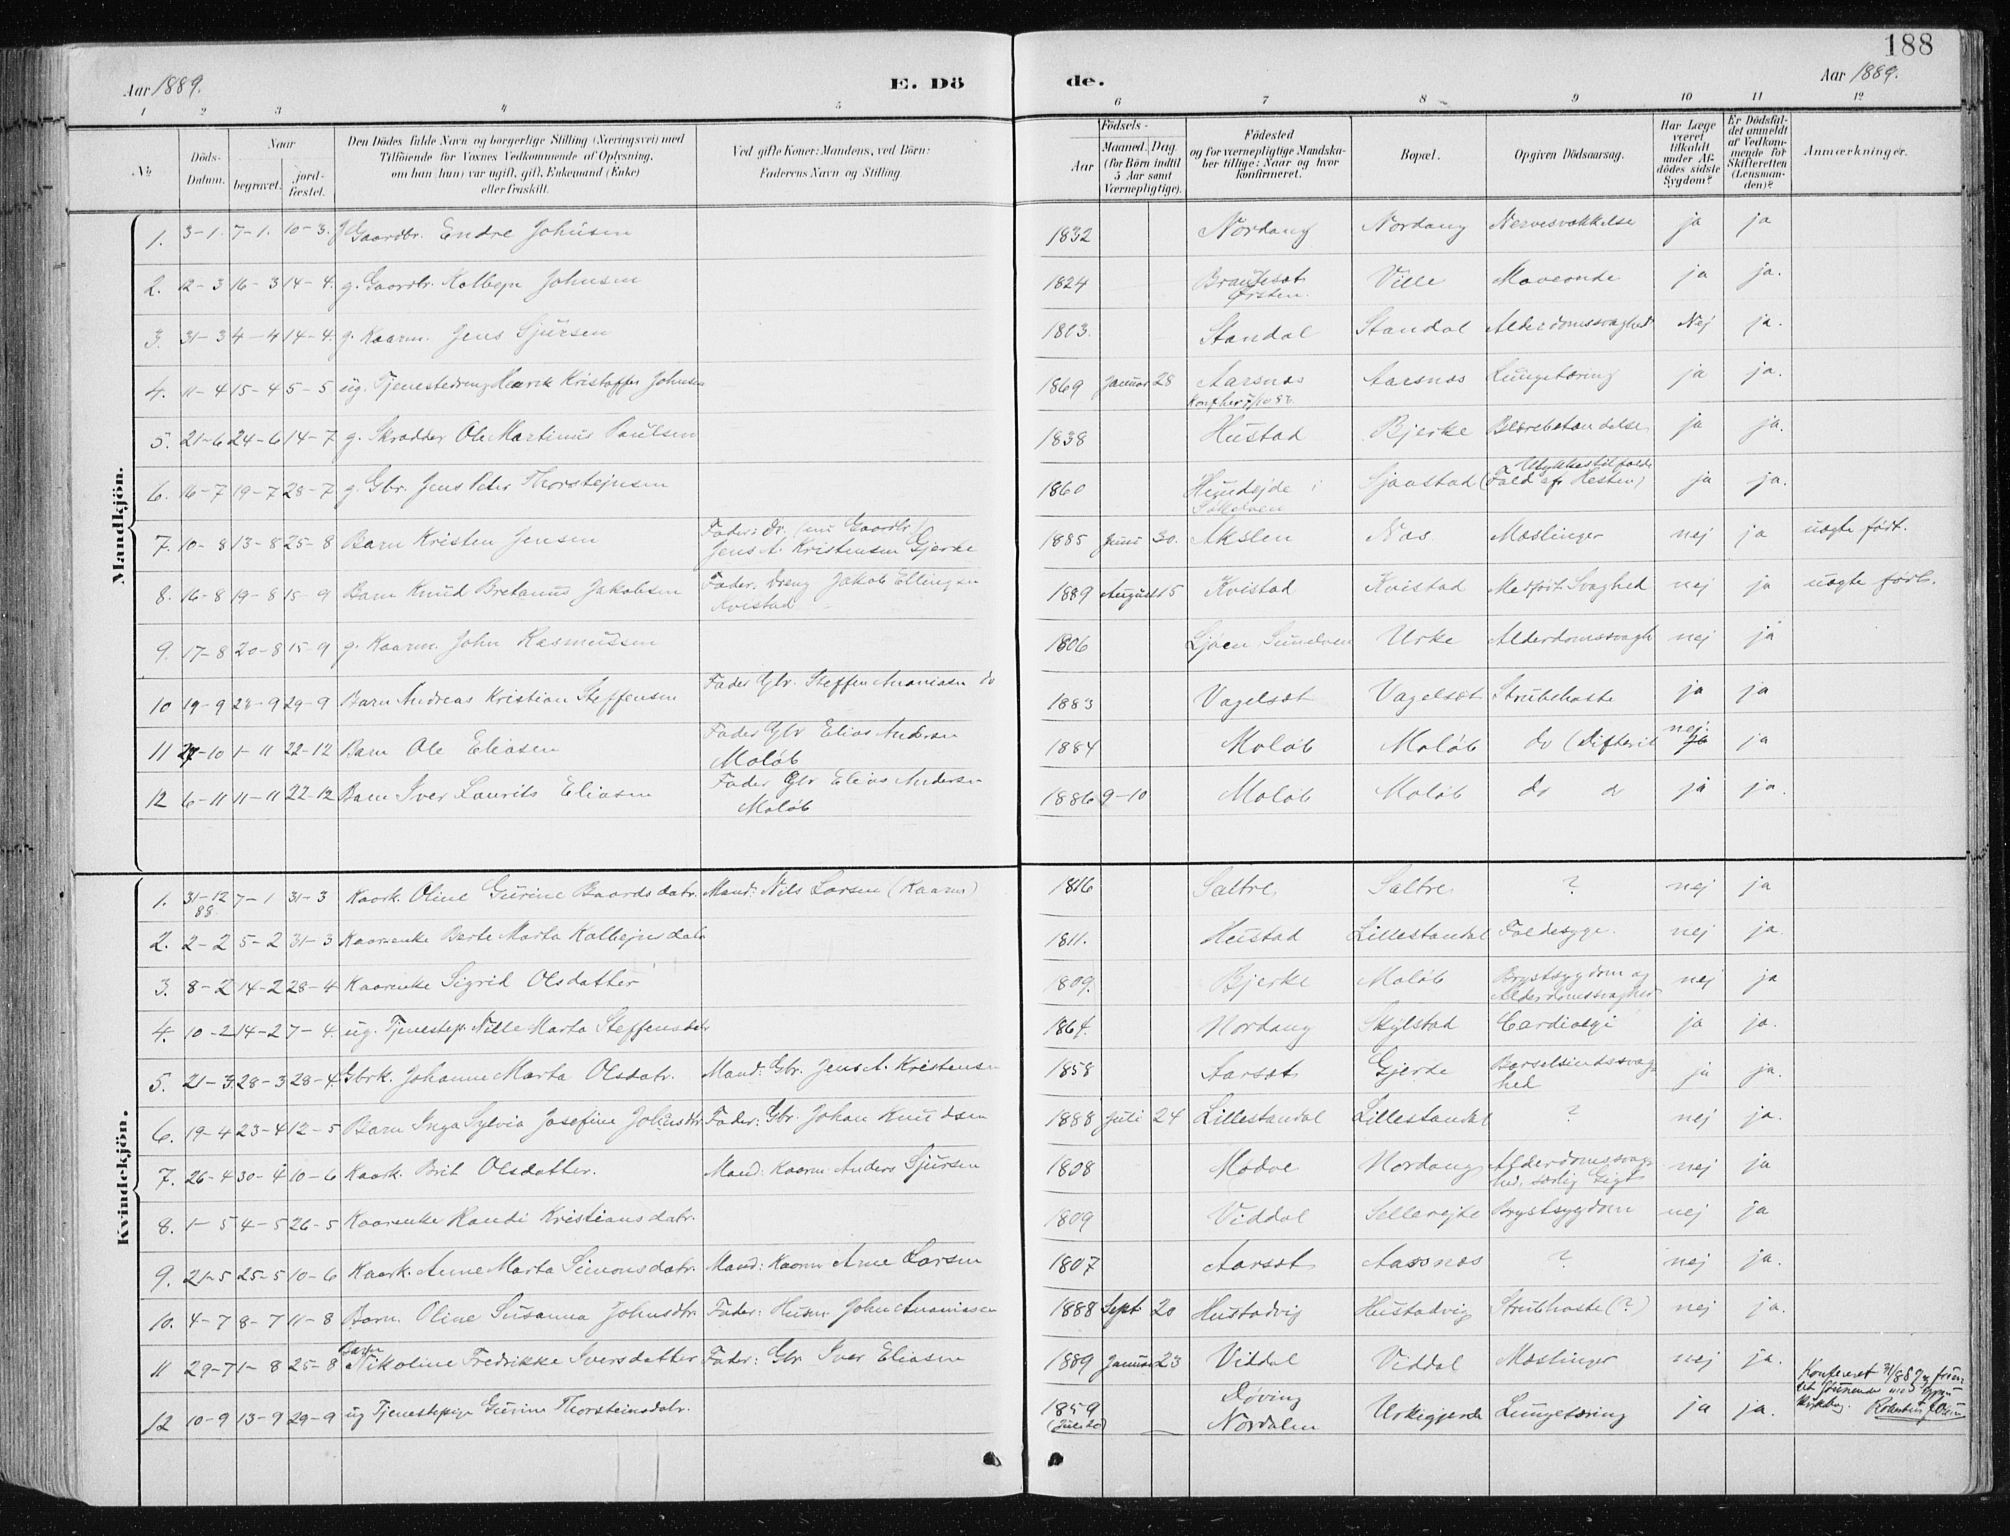 188
Aar 1889.
E. Dö
de.
Aar 1889.
1 2 3 4 5 6 7 8 9 10 11 12
No.
Döds-Datum.
Naar
begravet.
jordfæstet.
Den Dödes fulde Navn og borgerlige Stilling (Næringsvei) med
Tilföiende for Voxnes Vedkommende af Oplysning,
om han (hun) var ugift, gift, Enkemand (Enke)
eller fraskilt.
Ved gifte Koner: Mandens, ved Börn:
Faderens Navn og Stilling.
Födsels-
Aar
Maaned. Dag.
(for Börn indtil
5 Aar samt
Værnepligtige).
Födested
og for værnepligtige Mandska-
ber tillige: Naar og hvor
konfirmeret.
Bopæl.
Opgiven Dödsaarsag.
Har Læge
været
tilkaldt
under Af-
dödes sidste
Sygdom?
Er Dödsfal-
det anmeldt
af Vedkom-
mende for
Skifteretten
(Lensman-
den)?
Anmærkninger.
Mandkjön.
1. 3-1. 7-1. 10-3. Gaardbr. Endre Johnsen 1832 Nordang Nordang Nervesvækkelse ja ja
2. 12-3 16-3 14-4. g. Gaardbr. Kolbejn Johnsen 1824 Ørsten. Ville Maveonde ja ja.
3. 31-3 4-4 14-4. g. Kaarm. Jens Sjursen 1803. Standal Standal Alderdomssvaghed Nej ja.
4. 11-4 15-4 5-5 ug. Tjenestedreng Henrik Kristoffer Johnsen 1869 Januar 28 Aarsnæs Aarsnæs Lungetæring ja ja.
5. 21-6 24-6 14-7 g. Skrædder Ole Martinus Paulsen 1838 Hustad Bjerke Blærebetændelse ja ja.
6. 16-7 19-7 28-7 g. Gbr. Jens Peter Thorstejnsen 1860 Hundejde i Sjaastad (Fald af Hesten) ja ja.
7. 10-8 13-8 25-8 Barn Kristen Jensen Fader: Dr. (nu Gaardbr.)
Jens A. Kristensen Gjerde 1885 Juni 30. Akslen Næs Mæslinger nej ja uægte født.
8. 16-8 19-8 15-9 Barn Knud Bretanus Jakobsen Fader: Dreng Jakob Ellingsen
Kvistad 1889 August 15 Kvistad Kvistad Medfødt Svaghed nej ja uægte født.
9. 17-8 20-8 15-9 g. Kaarm. John Rasmussen 1806 Ljøen Sunelven Urke Alderdomssvagh nej ja
10 19-9 28-9 29-9 Barn Andreas Kristian Steffensen Fader Gbr. Steffen Ananiasen do 1883 Vagelsæt Vagelsæt Strubehoste ja ja
11 27-10 1-11 22-12 Barn Ole Eliasen Fader Gbr Elias Andersen
Moløb 1884 Moløb Moløb do (Difterit nej ja
12 6-11 11-11 22-12 Barn Iver Laurits Eliasen Fader Gbr Elias Andersen
Moløb 1886 9-10 Moløb Moløb do ja ja.
Kvindekjön.
1. 31-12 88 7-1 31-3 Kaark. Oline Gurine Baardsdatr. Mand: Nils Larsen (Kaarm) 1816 Sætre Sætre ? nej ja
2. 2-2 5-2 31-3 Kaarenke Berte Marta Kolbejnsdatr 1811. Hustad Lillestandal Faldesyge. nej ja.
3. 8-2 14-2 28-4 Kaarenke Sigrid Olsdatter 1809. Bjerke Moløb Brystsygdom og
Alderdomssvaghed nej ja
4. 10-2 14-2 7-4. ug. Tjenestep. Nille Marta Steffensdatr 1864. Nordang Skylstad Cardialgi ja ja.
5. 21-3 28-3 28-4. Gbrk. Johanne Marta Olsdatr. Mand: Gbr. Jens A. Kristensen 1858 Aarsæt Gjerde Barselsindssvag-
hed ja ja.
6. 19-4 23-4 12-5 Barn Inga Sylvia Josefine Johansdtr. Fader: Gbr. Johan Knudsen 1888 Juli 24 Lillestandal Lillestandal ? nej ja.
7. 26-4 30-4 10-6 Kaark. Brit Olsdatter. Mand: Kaarm Anders Sjursen 1808 Modve Nordang Alderdomssvag-
hed, særlig Gigt nej ja
8. 1-5 4-5 26-5 Kaarenke Randi Kristiansdatr. 1809 Viddal Sellerejte Brystsygdom nej ja
9. 21-5 25-5 10-6 Kaark. Anne Marta Simonsdatr. Mand: Kaarm Arne Larsen 1807 Aarsæt Aarsnæs ? nej ja.
10. 4-7 8-7 11-8 Barn. Oline Susanna Johnsdtr. Fader: Husm John Ananiasen 1888 Sept 20 Hustadvig Hustadvig Strubehoste (?) nej ja.
11 29-7 1-8 25-8 Barn Nikoline Fredrikke Iversdatter Fader: Gbr Iver Eliasen 1889 Januar 23 Viddal Viddal Mæslinger nej ja.
12 10-9 13-9 29-9 ug Tjenestepige Gurine Thorsteinsdatr. 1859 Døving
Nordalen Urkegjerde Lungetæring ja ja.